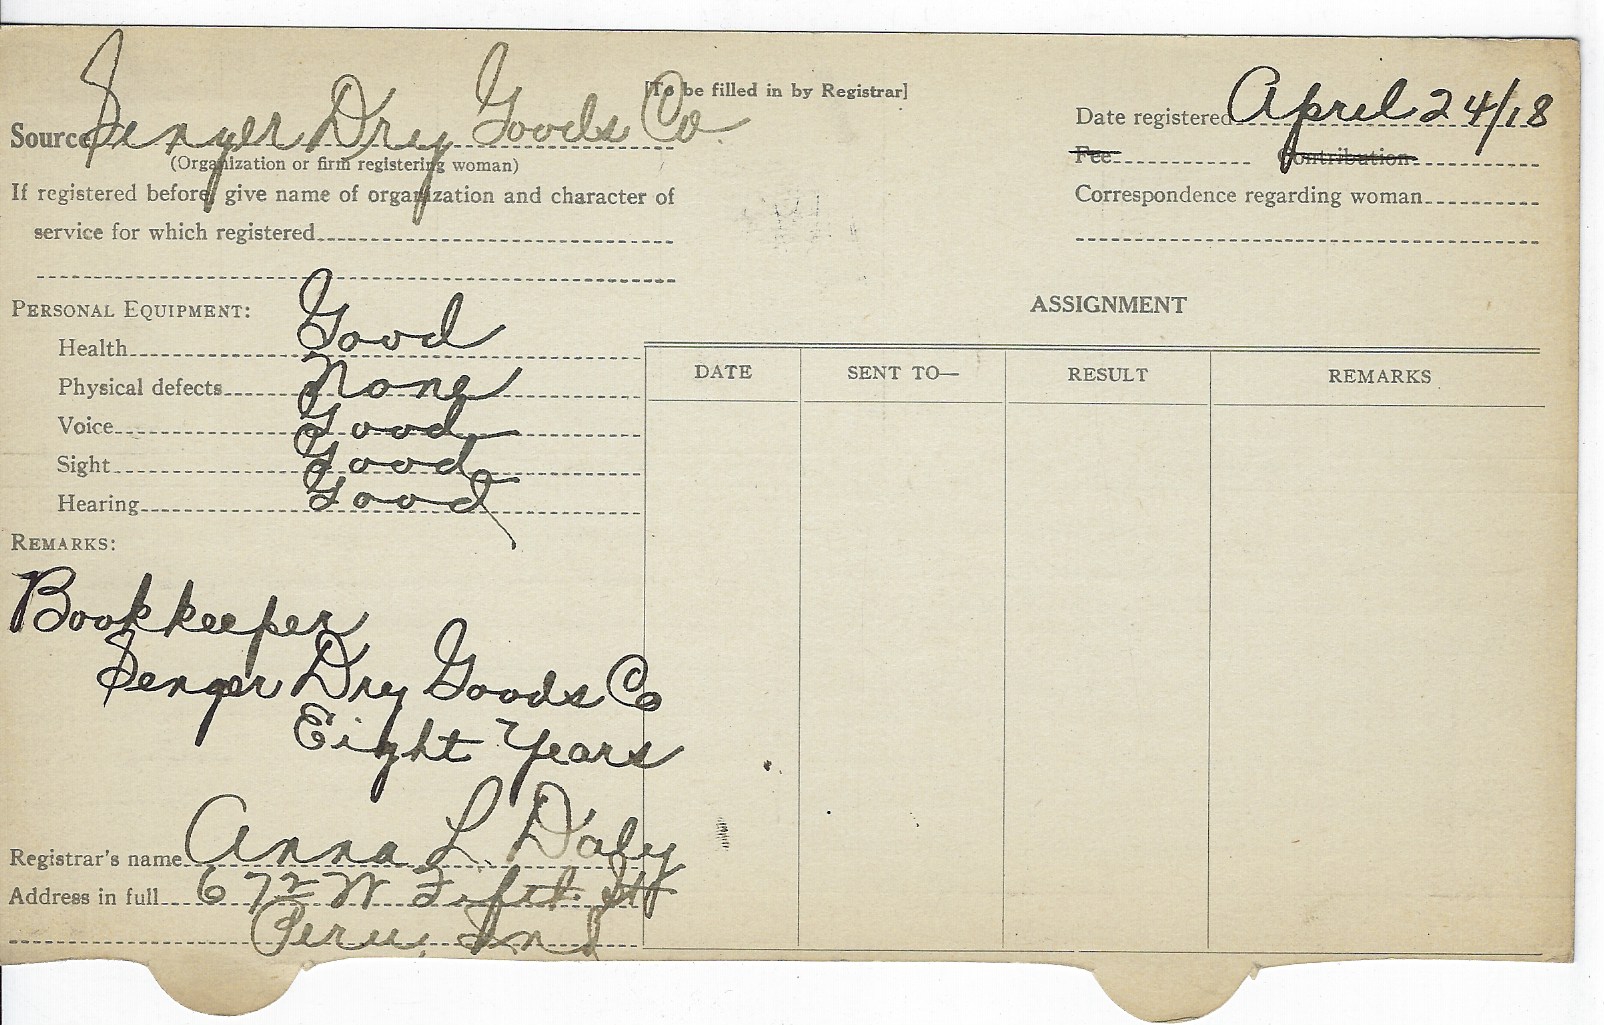 [To be filled in by Registrar]
Source Senger Dry Goods Co
(Organization or firm registering woman)
If registered before, give name of organization and character of
service for which registered
PERSONAL EQUIPMENT:
Health Good
Physical defects None
Voice Good
Sight Good
Hearing Good
REMARKS:
Bookkeeper
Senger Dry Goods Co
Eight Years
Registrar's name Anna L. Daly
Address in full 672 W Fifth St
Peru, Ind
Date registered April 24/18
Fee Contribution
Correspondence regarding woman
ASSIGNMENT
DATE SENT TO— RESULT REMARKS